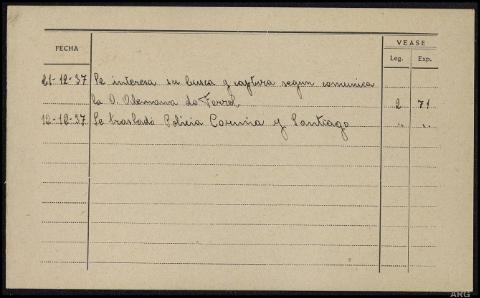 VEASE
FECHA
Leg. Exp.
21-12-37 Se interesa su busca y captura segun comunica
la D. Alemana do Ferrol 2 71
12-12-37 Se traslado Policia Coruña y Santiago " "
ARG